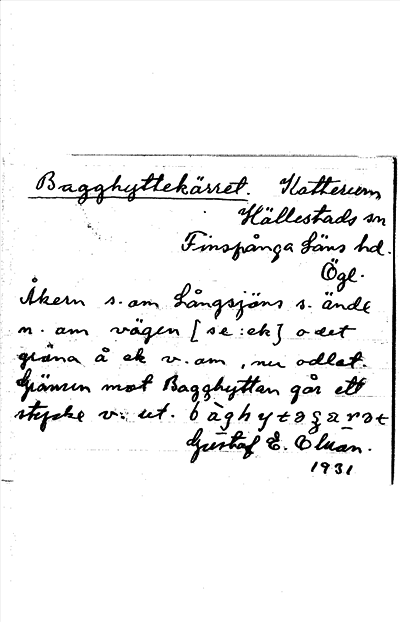 Bagghyttekärret. Katterum,
Hällestads sn
Finspånga Läns hd.
Ögl.
Åkern s. om Långsjöns s. ände
n. om vägen [se :ek] o det
gröna å ek v. om, nu odlat.
Gränsen mot Bagghyttan går ett
stycke v. ut.
Gustaf E.
1931